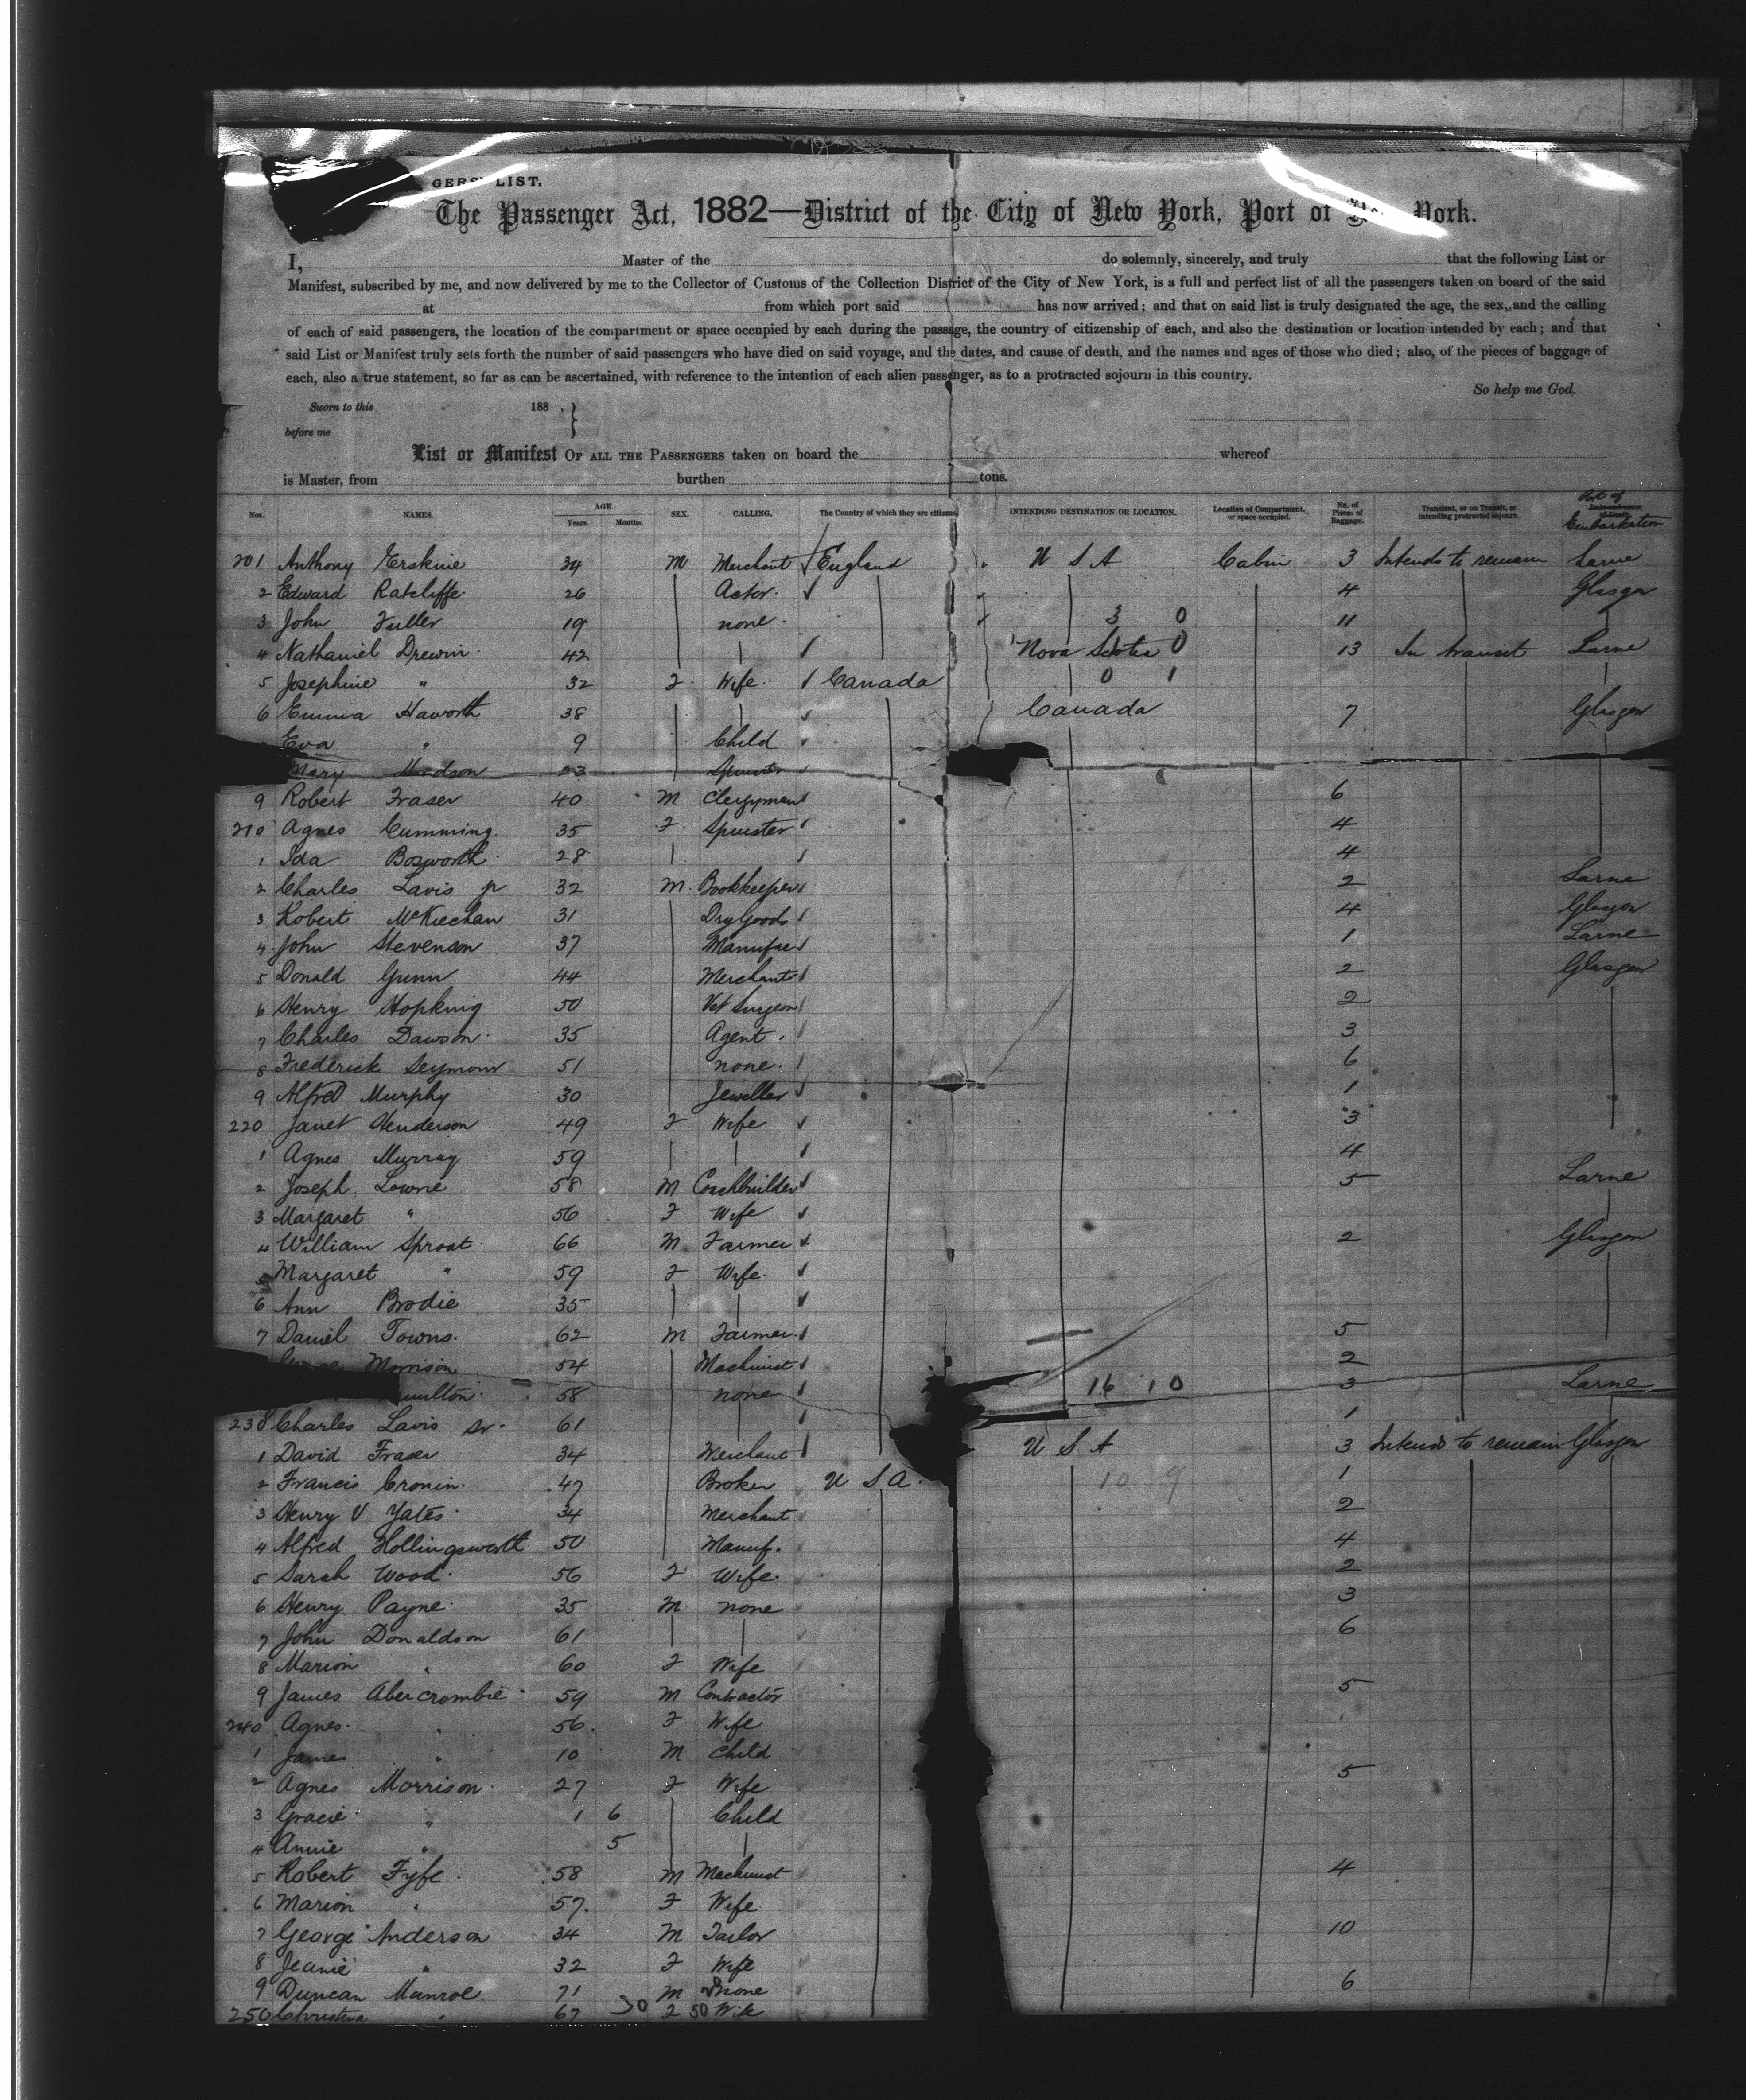 GERS' LIST.
The Passenger Act, 1882—District of the City of New York, Port of York.
I, Master of the do solemnly, sincerely, and truly that the following List or
Manifest, subscribed by me, and now delivered by me to the Collector of Customs of the Collection District of the City of New York, is a full and perfect list of all the passengers taken on board of the said
at from which port said has now arrived; and that on said list is truly designated the age, the sex, and the calling
of each of said passengers, the location of the compartment or space occupied by each during the passage, the country of citizenship of each, and also the destination or location intended by each; and that
said List or Manifest truly sets forth the number of said passengers who have died on said voyage, and the dates, and cause of death, and the names and ages of those who died; also, of the pieces of baggage of
each, also a true statement, so far as can be ascertained, with reference to the intention of each alien passenger, as to a protracted sojourn in this country.
So help me God.
Sworn to this 188 , }
before me
List or Manifest OF ALL THE PASSENGERS taken on board the whereof
is Master, from burthen tons.
Nos. NAMES. AGE Years. Months. SEX. CALLING. The Country of which they are citizens INTENDING DESTINATION OR LOCATION. Location of Compartment, or space occupied. No. of Pieces of Baggage. Transient, or on Transit, or intending protracted sojourn Port of Embarkation
201 Anthony Erskine 34 M Merchant England U S A Cabin 3 Intends to remain Larne
2 Edward Ratcliffe 26 Actor 4 Glasgow
3 John Fuller 19 none 3 0 11
4 Nathaniel Drewin 42 Nova Scotia 0 13 In transit Larne
5 Josephine " 32 F Wife Canada 0 1
6 Emma Haworth 38 Canada 7 Glasgow
Eva " 9 Child
Mary Hudson 23 Spinster
9 Robert Fraser 40 M Clergyman 6
210 Agnes Cumming 35 F Spinster 4
1 Ida Bosworth 28 4
2 Charles Lavis jr 32 M Bookkeeper 2 Larne
3 Robert McKiechan 31 DryGoods 4 Glasgow
4 John Stevenson 37 Manufac 1 Larne
5 Donald Gunn 44 Merchant 2 Glasgow
6 Henry Hopking 50 Vet Surgeon 2
7 Charles Dawson 35 Agent 3
8 Frederick Seymour 51 none 6
9 Alfred Murphy 30 Jeweller 1
220 Janet Henderson 49 F Wife 3
1 Agnes Murray 59 4
2 Joseph Lowrie 58 M Coachbuilder 5 Larne
3 Margaret " 56 F Wife
4 William Sproat 66 M Farmer 2 Glasgow
5 Margaret " 59 F Wife
6 Ann Brodie 35
7 Daniel Towns 62 M Farmer 5
Morrison 54 Machinist 2
milton 58 none 16 10 3 Larne
230 Charles Lavis Sr 61 1
1 David Fraser 34 Merchant U S A 3 Intends to remain Glasgow
2 Francis Cronin 47 Broker U S A 10 9 1
3 Henry V Yates 34 Merchant 2
4 Alfred Hollingsworth 50 Manuf. 4
5 Sarah Wood 56 F Wife 2
6 Henry Payne 35 M none 3
7 John Donaldson 61 6
8 Marion " 60 F Wife
9 James Abercrombie 59 M Contractor 5
240 Agnes " 56 F Wife
1 James " 10 M Child
2 Agnes Morrison 27 F Wife 5
3 Gracie " 1 6 Child
4 Annie " 5
5 Robert Fyfe 58 M Machinist 4
6 Marion " 57 F Wife
7 George Anderson 34 M Tailor 10
8 Jeanie " 32 F Wife
9 Duncan Munroe 71 M none 6
250 Christina " 67 30 F 50 Wife